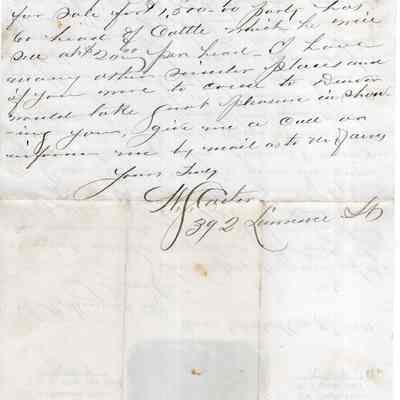 for sale for $1,500.00 party has
60 head of Cattle which he will
sell at $20.00 per head - I have
many other similar places and
if you were to come to Denver
would take great pleasure in show
ing you, give me a call or
inform me by mail as to
Yours Truly
392 Lawrence St